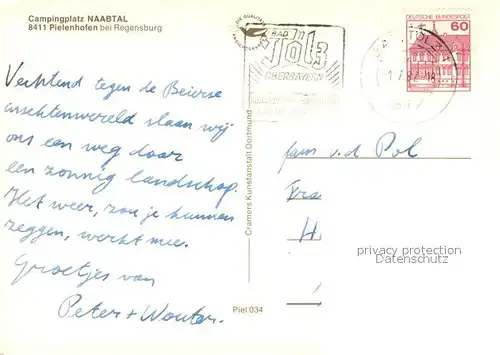 Campingplatz NAABTAL
8411 Pielenhofen bei Regensburg
Vechtend tegen de Beierse
insektenwereld slaan wij
ons een weg door
een zonnig landschap.
Het weer, zou je kunnen
zeggen, werkt mee.
Groetjes van
Peter + Wouter.
Cramers Kunstanstalt Dortmund
Piel 034
BAD
Tölz
OBERBAYERN
DEUTSCHE BUNDESPOST
60
fam v.d. Pol
privacy protection
Datenschutz